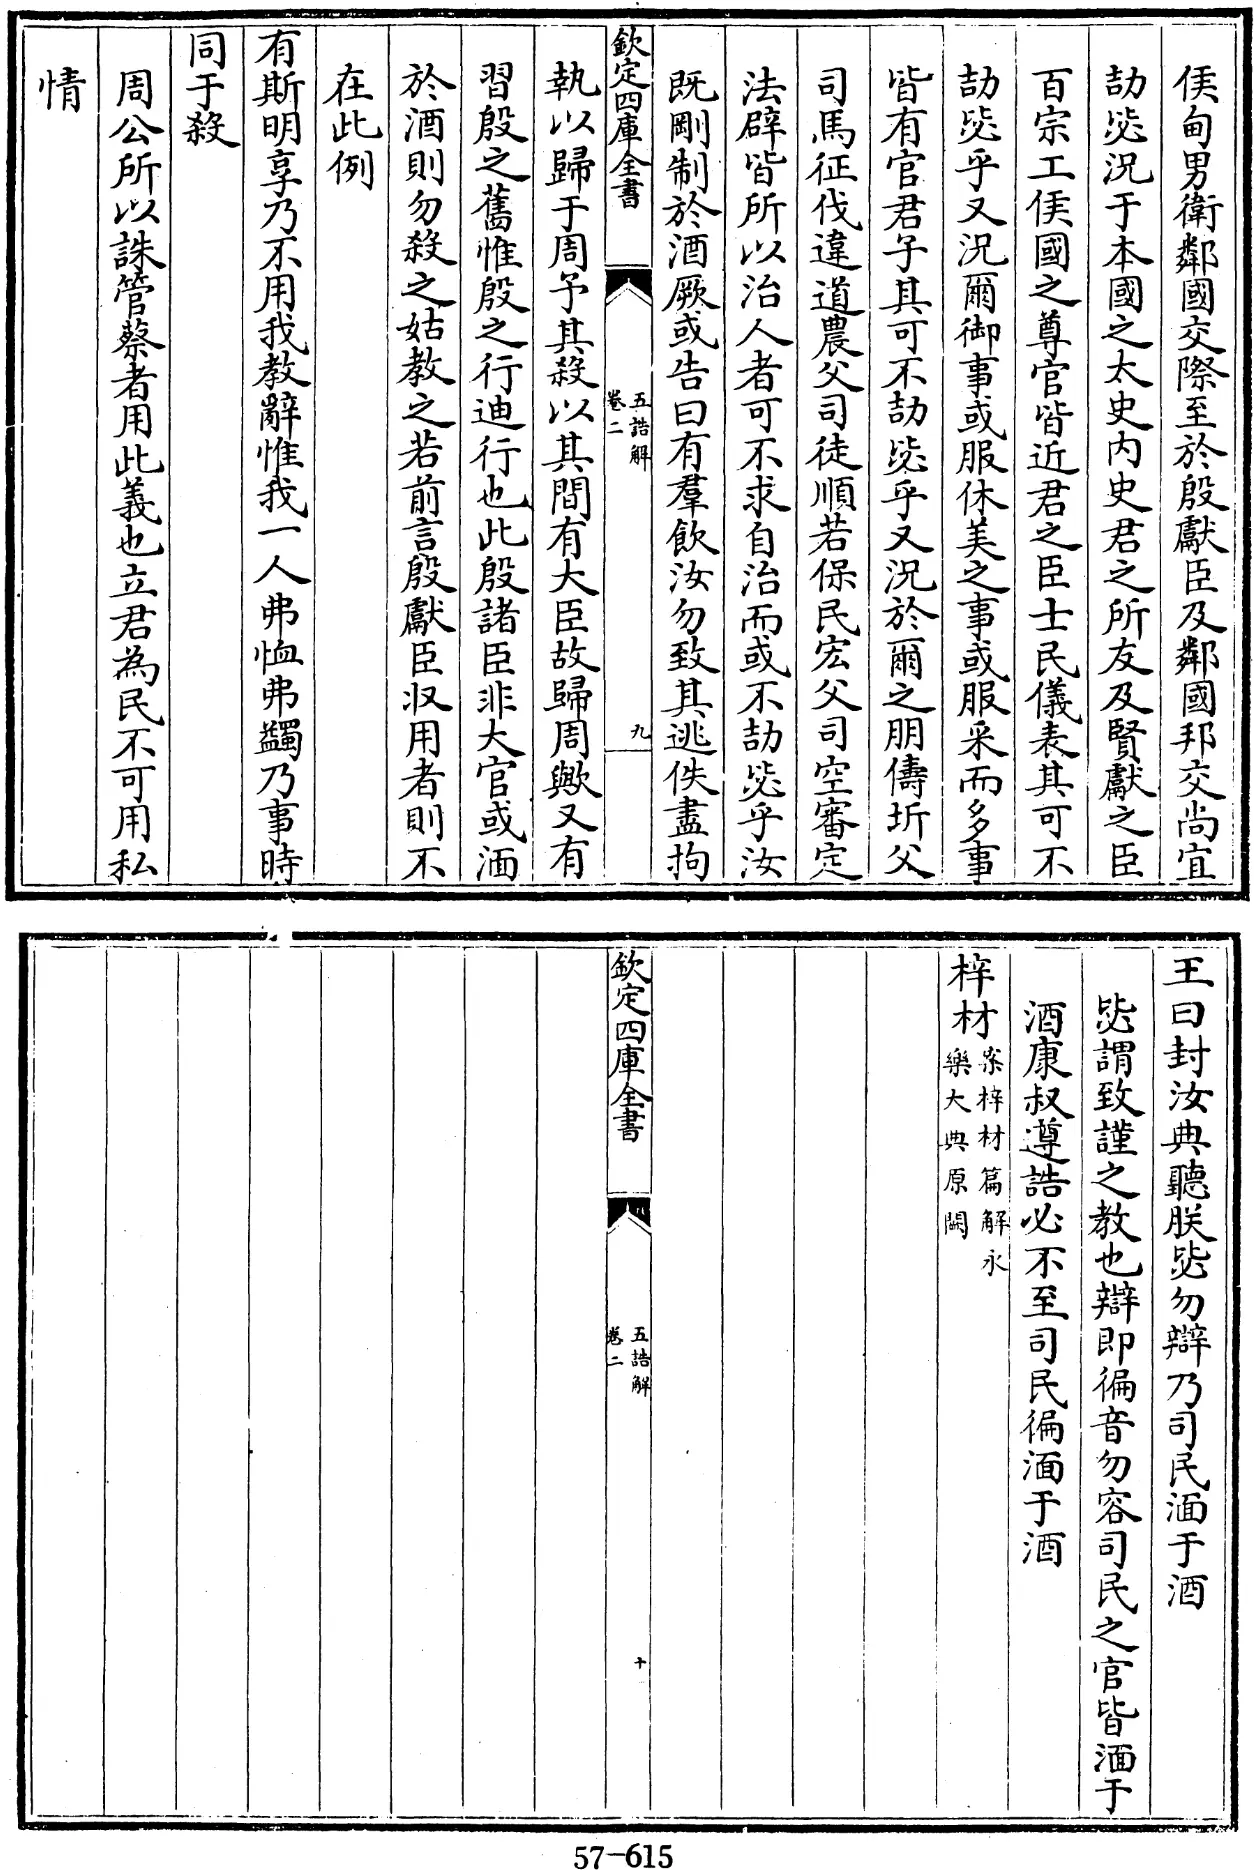 侯甸男衛鄰國交際至於殷獻臣及鄰國邦交尚宜
劼毖況于本國之太史内史君之所友及賢獻之臣
百宗工侯國之尊官皆近君之臣士民儀表其可不
劼毖乎又況爾御事或服休美之事或服采而多事
皆有官君子其可不劼毖乎又況於爾之朋儔圻父
司馬征伐違道農父司徒順若保民宏父司空審定
法辟皆所以治人者可不求自治而或不劼毖乎汝
既剛制於酒厥或告曰有羣飲汝勿致其逃佚盡拘
欽定四庫全書
五誥解
卷二
九
執以歸于周予其殺以其間有大臣故歸周歟又有
習殷之舊惟殷之行迪行也此殷諸臣非大官或湎
於酒則勿殺之姑教之若前言殷獻臣収用者則不
在此例
有斯明享乃不用我教辭惟我一人弗恤弗蠲乃事時
同于殺
周公所以誅管蔡者用此義也立君為民不可用私
情
王曰封汝典聽朕毖勿辯乃司民湎于酒
毖謂致謹之教也辯即徧音勿容司民之官皆湎于
酒康叔遵誥必不至司民徧湎于酒
梓材
案梓材篇解永
樂大典原闕
欽定四庫全書
五誥解
卷二
十
57-615